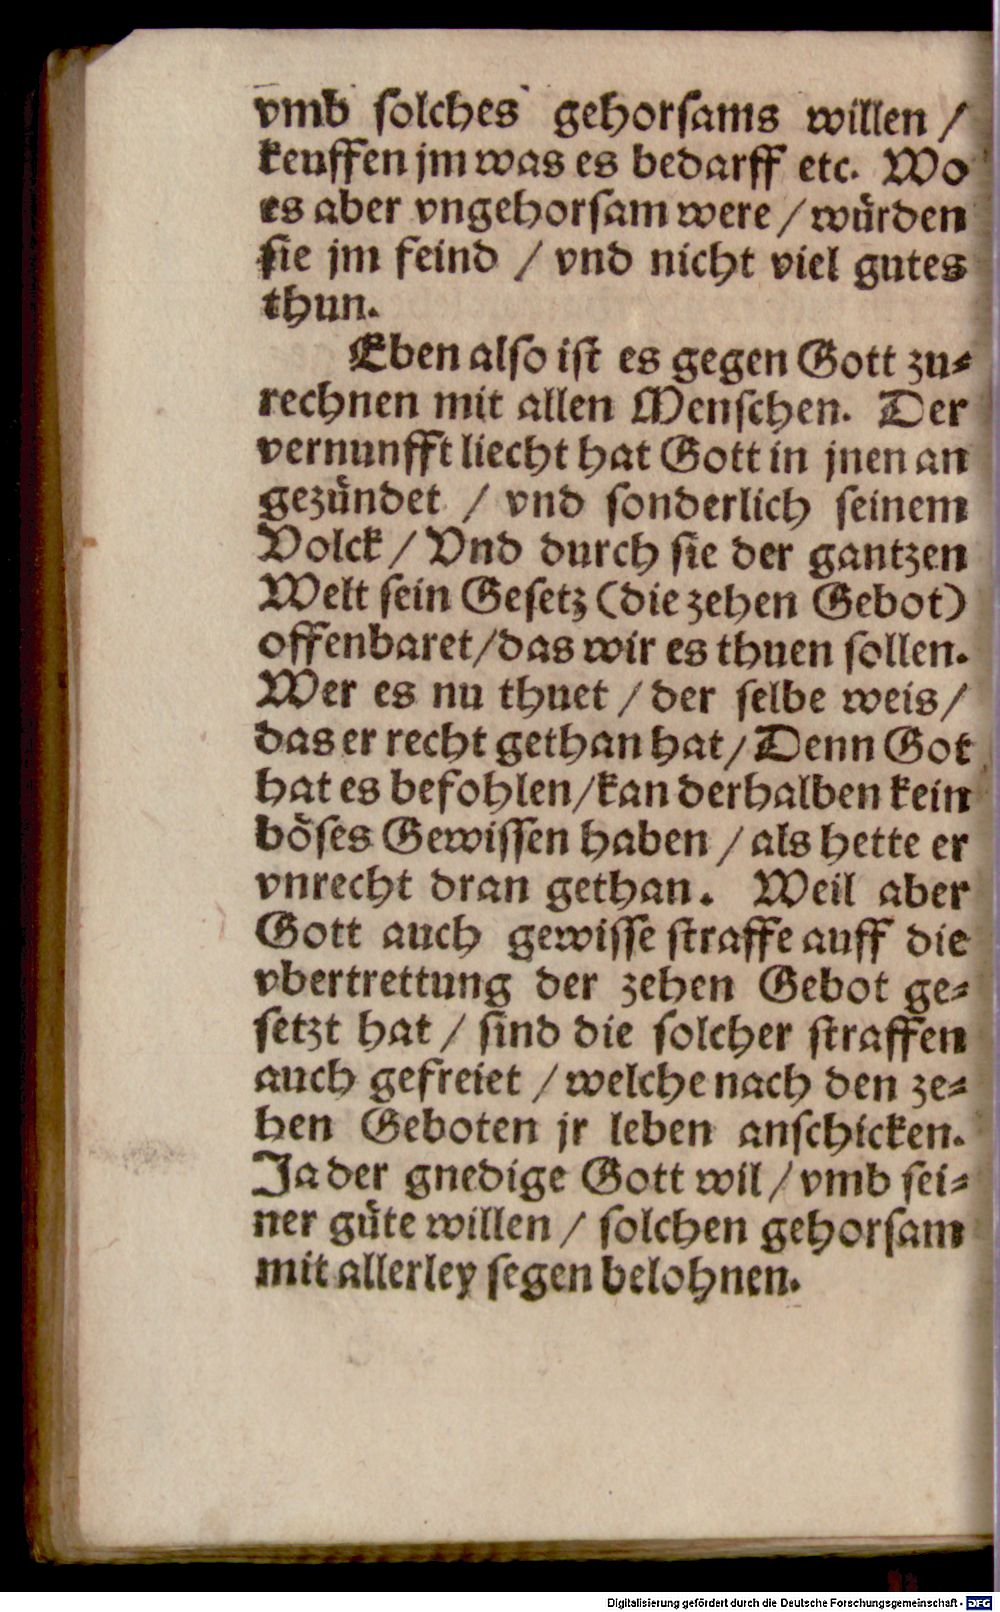 vmb solches gehorsams willen /
keuffen jm was es bedarff etc. Wo
es aber vngehorsam were / würden
sie jm feind / vnd nicht viel gutes
thun.
Eben also ist es gegen Gott zu⸗
rechnen mit allen Menschen. Der
vernunfft liecht hat Gott in jnen an
gezündet / vnd sonderlich seinem
Volck / Vnd durch sie der gantzen
Welt sein Gesetz (die zehen Gebot)
offenbaret / das wir es thuen sollen.
Wer es nu thuet / der selbe weis /
das er recht gethan hat / Denn Got
hat es befohlen / kan derhalben kein
böses Gewissen haben / als hette er
vnrecht dran gethan. Weil aber
Gott auch gewisse straffe auff die
vbertrettung der zehen Gebot ge⸗
setzt hat / sind die solcher straffen
auch gefreiet / welche nach den ze⸗
hen Geboten jr leben anschicken.
Ja der gnedige Gott wil / vmb sei⸗
ner güte willen / solchen gehorsam
mit allerley segen belohnen.
Digitalisierung gefördert durch die Deutsche Forschungsgemeinschaft - DFG